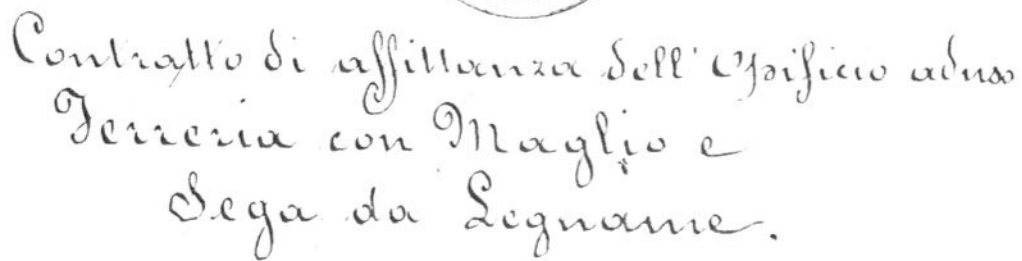 Contratto di affittanza dell' Opificio aduso
Ferreria con Maglio e
Sega da Legname.